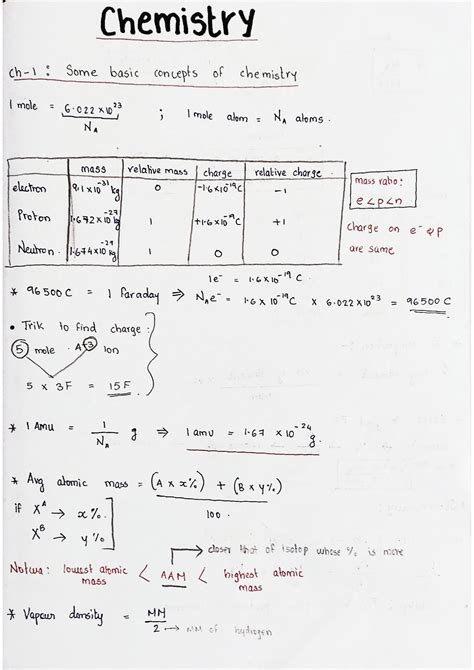 Chemistry
Ch-1 : Some basic concepts of chemistry
1 mole = 6.022 x 10²³ ; 1 mole atom = N_A atoms.
N_A
mass | relative mass | charge | relative charge
electron | 9.1x10⁻³¹ kg | 0 | -1.6x10⁻¹⁹C | -1
Proton | 1.672x10⁻²⁷ kg | 1 | +1.6x10⁻¹⁹C | +1
Neutron | 1.674x10⁻²⁷ kg | 1 | 0 | 0
mass ratio:
e<p<n
charge on e⁻ & p
are same
1e⁻ = 1.6x10⁻¹⁹ C
* 96500 C = 1 faraday ⇒ N_A e⁻ = 1.6 x 10⁻¹⁹C x 6.022x10²³ = 96500C
• Trik to find charge:
5 mole A⁺³ Ion
5 x 3F = 15F
* 1 Amu = 1/N_A g ⇒ 1 amu = 1.67 x 10⁻²⁴ g.
* Avg atomic mass = (A x x%) + (B x y%)
100.
if X^A → x%.
X^B → y%
→ closer that of isotop whose % is more
lowest atomic mass < AAM < highest atomic mass
* Vapour density = MM
2 → MM of hydrogen